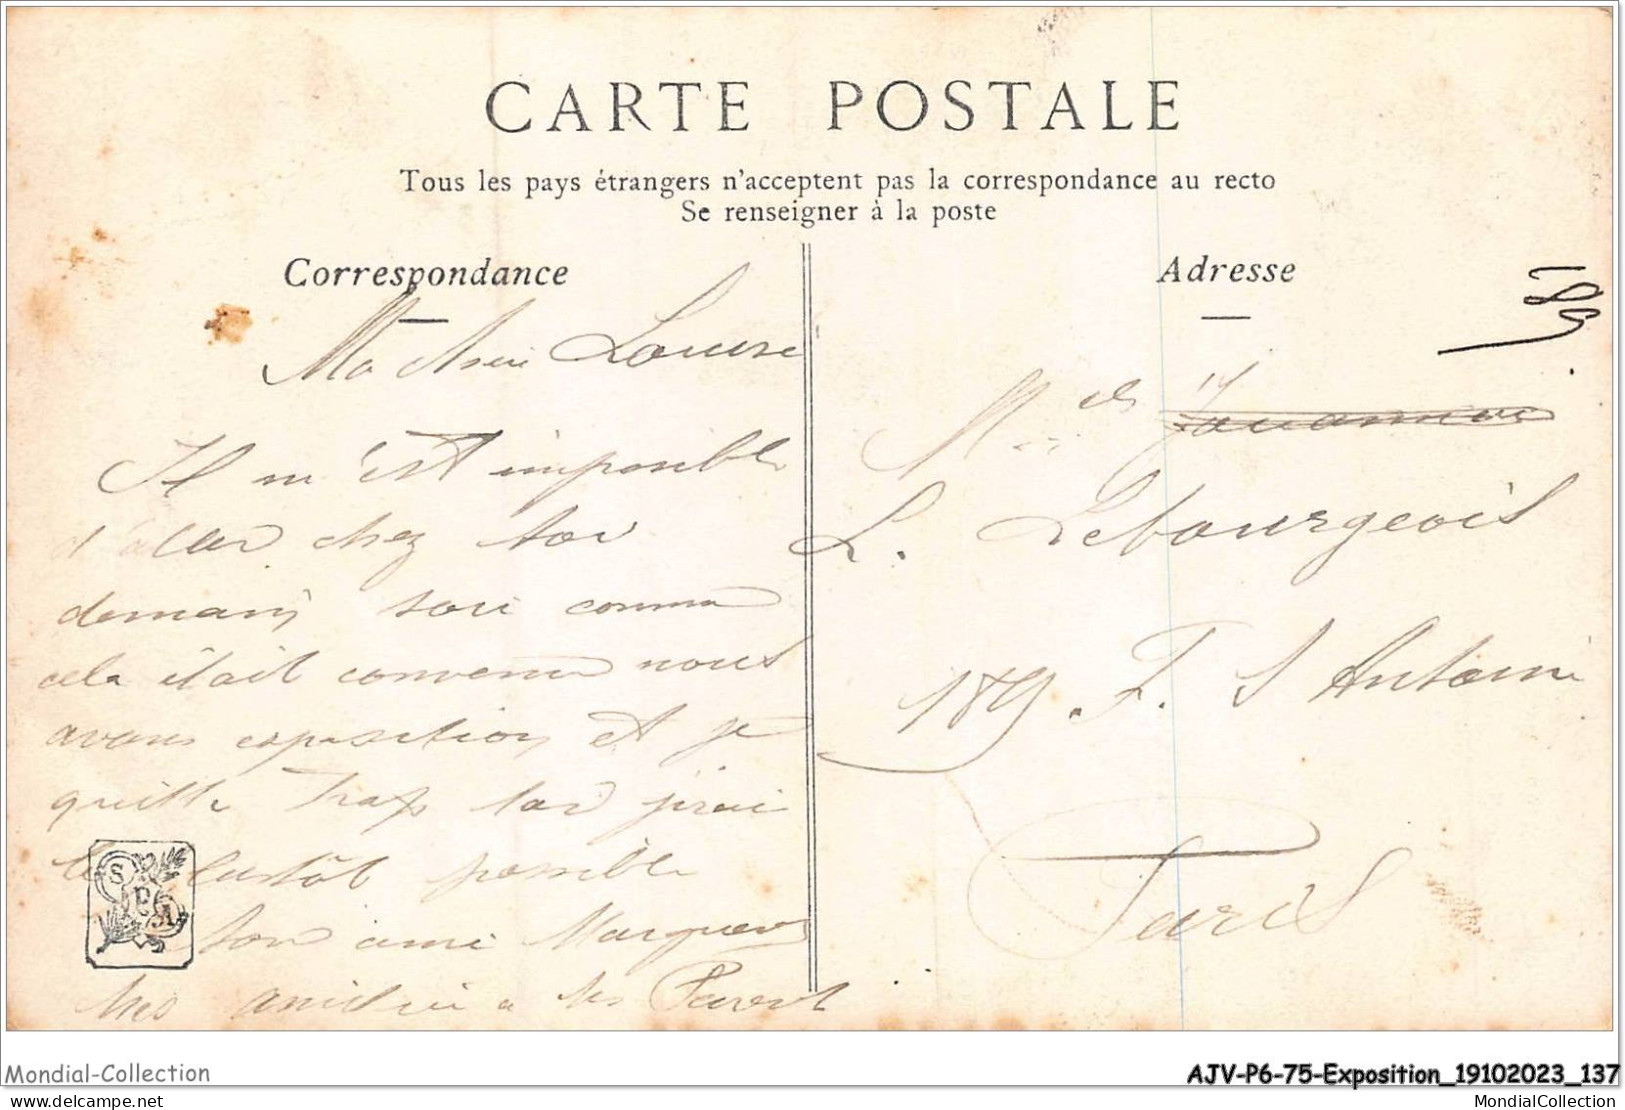 CARTE POSTALE
Tous les pays étrangers n'acceptent pas la correspondance au recto
Se renseigner à la poste
Correspondance
Adresse
189
Ma chère Louise
Il m'est imposible
d'aler chez toi
demain soir comme
cela était convenu nous
avons exposition et je
quitte trop tar j'irai
le plustôt possible
ton amie
Mes amitiée a tes Parent
S P A
M elle
L. Lebourgeois
189. F. S Antoine
Paris
Mondial-Collection
AJV-P6-75-Exposition_19102023_137
delcampe.net
MondialCollection